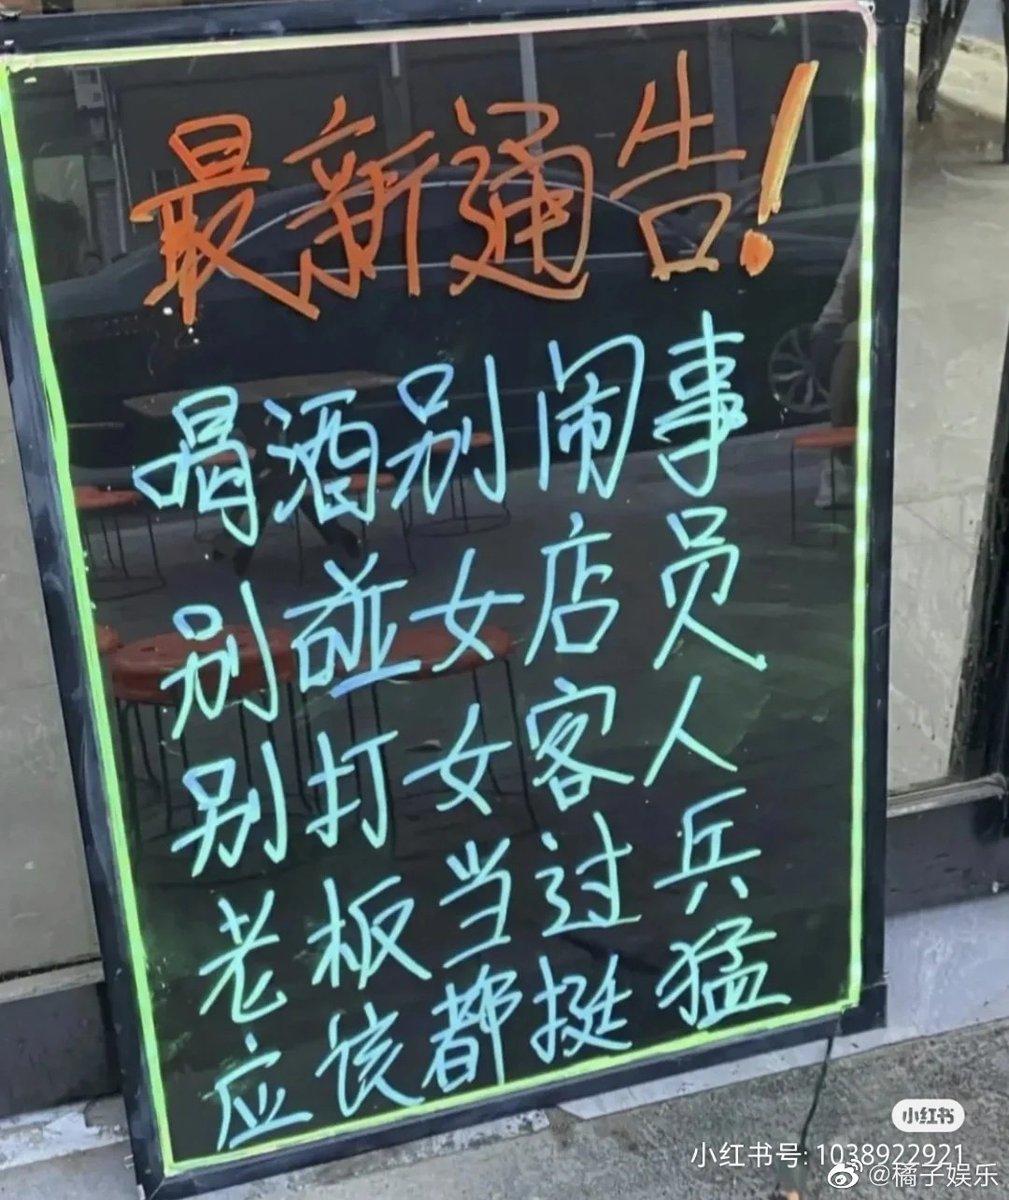 最新通告!
喝酒别闹事
别碰女店员
别打女客人
老板当过兵
应该都挺猛
小红书
小红书号: 1038922921
@橘子娱乐